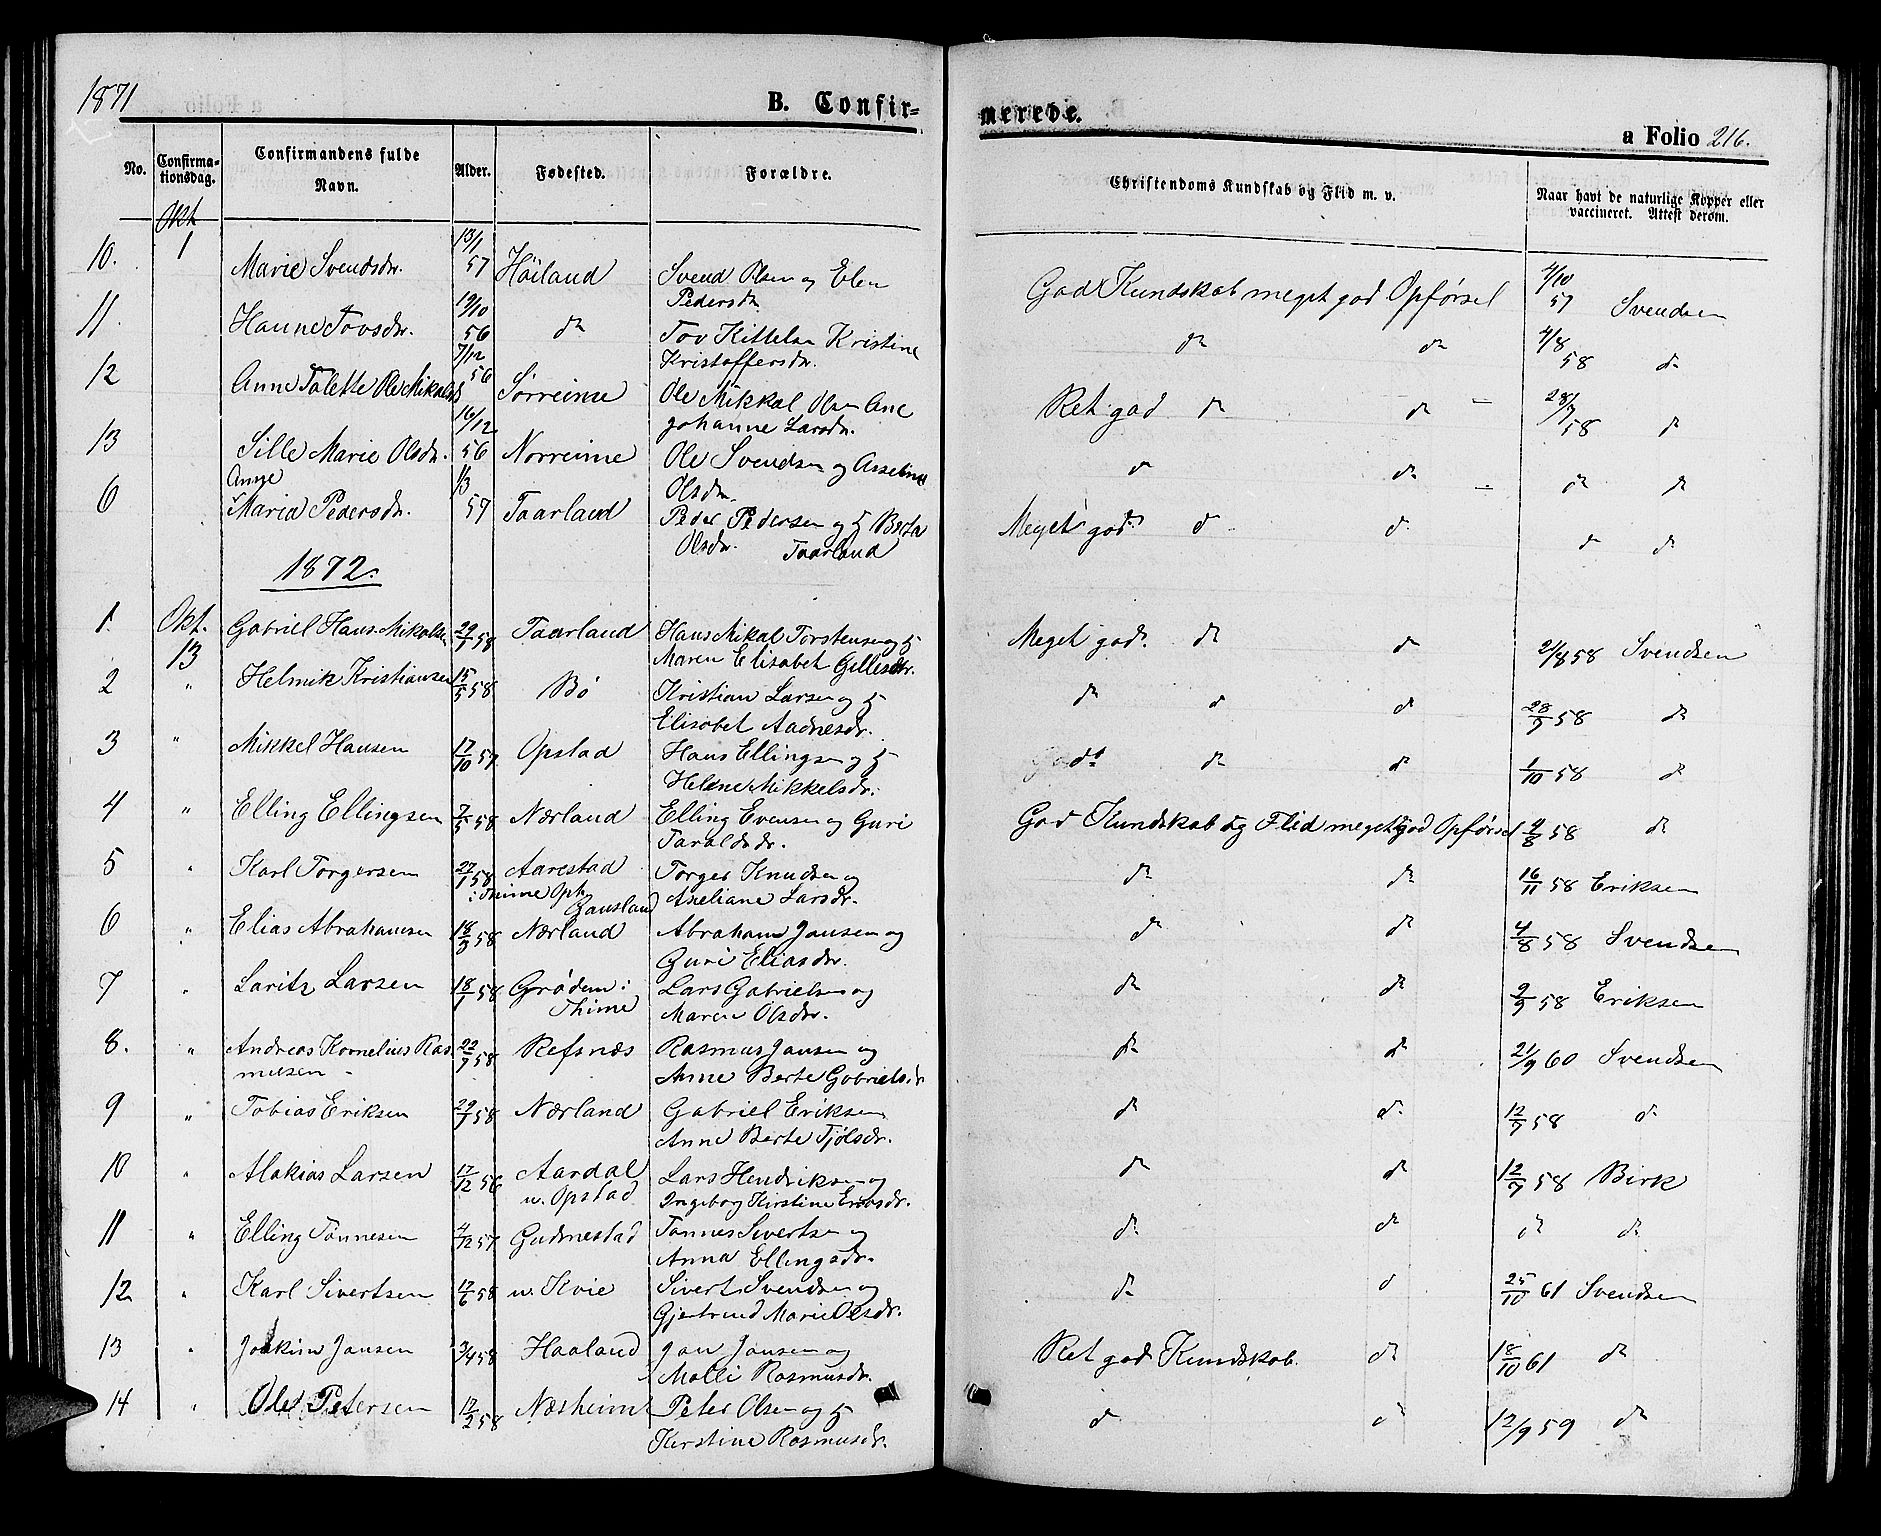 1871
B. Confir-
merede.
a Folio 216.
No. Confirma-tionsdag. Confirmandens fulde Navn. Alder. Fødested. Forældre. Christendoms Kundskab og Flid m. v. Naar havt de naturlige Kopper eller vaccineret. Attest derom.
Okt
10. 1 Marie Svendsdr. 13/1 57 Höiland Svend Olsen og Elen God Kundskab meget god Opførsel 4/10 57 Svendsen
Pedersdr.
11. Hanne Tovsdr. 19/10 56 do Tov Kittelsen Kristine do do 4/8 58 do
Kristoffersdr.
12 Anne Talette Ole Mikalsd 7/12 56 Sørreime Ole Mikkal Olsen Ane Ret god do do 28/7 58 do
Johanne Larsdr.
13 Sille Marie Olsdr. 16/12 56 Norreime Ole Svendsen og Asseline do do do do
Olsdr.
6 Anne Maria Pedersdr. 1/3 57 Taarland Peder Pedersen og H Berta Meget god do do do do
Olsdr. Taarland
1872.
1. Okt. 13 Gabriel Hans Mikalsen 29/7 58 Taarland Hans Mikal Torstensen og H Meget god do do 21/8 58 Svendsen
Maren Elisabet Gillesdr.
2 " Helmik Kristiansen 15/5 58 Bø Kristian Larsen og H do do do 28/7 58 do
Elisabet Aadnesdr.
3 " Mikkel Hansen 17/10 57 Opstad Hans Ellingsen og H God do do 1/10 58 do
Helene Mikkelsdr.
4 " Elling Ellingsen 7/5 58 Nærland Elling Evensen og Guri God Kundskab og Flid meget god Opførsel 4/8 58 do
Taraldsdr.
5 " Karl Torgersen 27/1 58 Aarestad Torger Knudsen og do do 16/11 58 Eriksen
i Thime Oph. Gausland Aseliane Larsdr.
6 " Elias Abrahamsen 18/3 58 Nærland Abraham Jansen og do do 4/8 58 Svendsen
Guri Eliasdr.
7 " Laritz Larsen 18/1 58 Grødem i Lars Gabrielsen og do do 2/9 58 Eriksen
Thime Maren Olsdr.
8. " Andreas Kornelius Ras 22/7 58 Refsnæs Rasmus Jansen og do do 21/9 60 Svendsen
musen Anne Berte Gabrielsdr
9 " Tobias Eriksen 29/7 58 Nærland Gabriel Eriksen do do 12/7 58 do
Anne Berte Tjølsdr.
10 " Alakias Larsen 17/12 56 Aardal Lars Hendriksen og do do 12/7 58 Birk
u. Opstad Ingeborg Kirstine
11 " Elling Tønnesen 4/12 57 Gudmestad Tønnes Sivertsen og do do do do
Anna Ellingsdr.
12 " Karl Sivertsen 17/6 58 u. Kvie Sivert Svendsen og do do 25/10 61 Svendsen
Gjertrud Marie Olsdr.
13 " Joakim Jansen 3/4 58 Haaland Jan Jansen og Ret god Kundskab. do 18/10 61 do
Malli Rasmusdr.
14 " Ole Petersen 17/2 58 Næsheim Peter Olsen og H do do 12/9 59 do
Kirstine Rasmusdr.